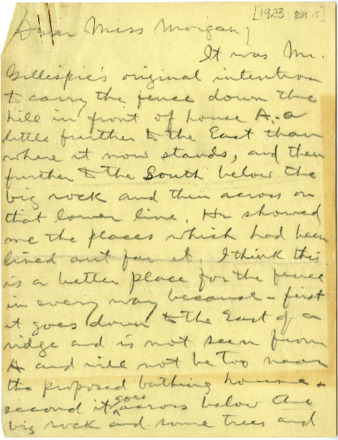 [1923 
Dear Miss Morgan,
It was Mr.
Gillespie's original intention
to carry the fence down the
hill in front of house A - a
little further to the East than
where it now stands, and then
further to the South below the
big rock and then across on
that lower line. He showed
me the places which had been
lined out for it. I think this
is a better place for the fence
in every way because - first
it goes down to the East of a
ridge and is not seen from
A and will not be too near
the proposed bathing house -
second it goes across below the
big rock and some trees and